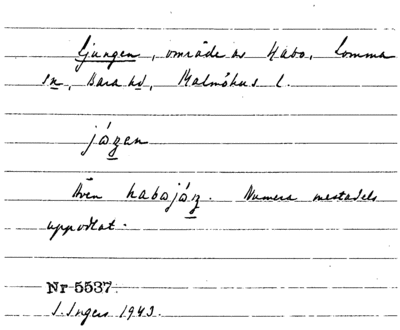 Ljungen, område av Habo, Lomma
sn, Bara hd, Malmöhus l.
jázen
Även habojáz. Numera mestadels
uppodlat.
Nr 5537.
I. Ingers 1943.